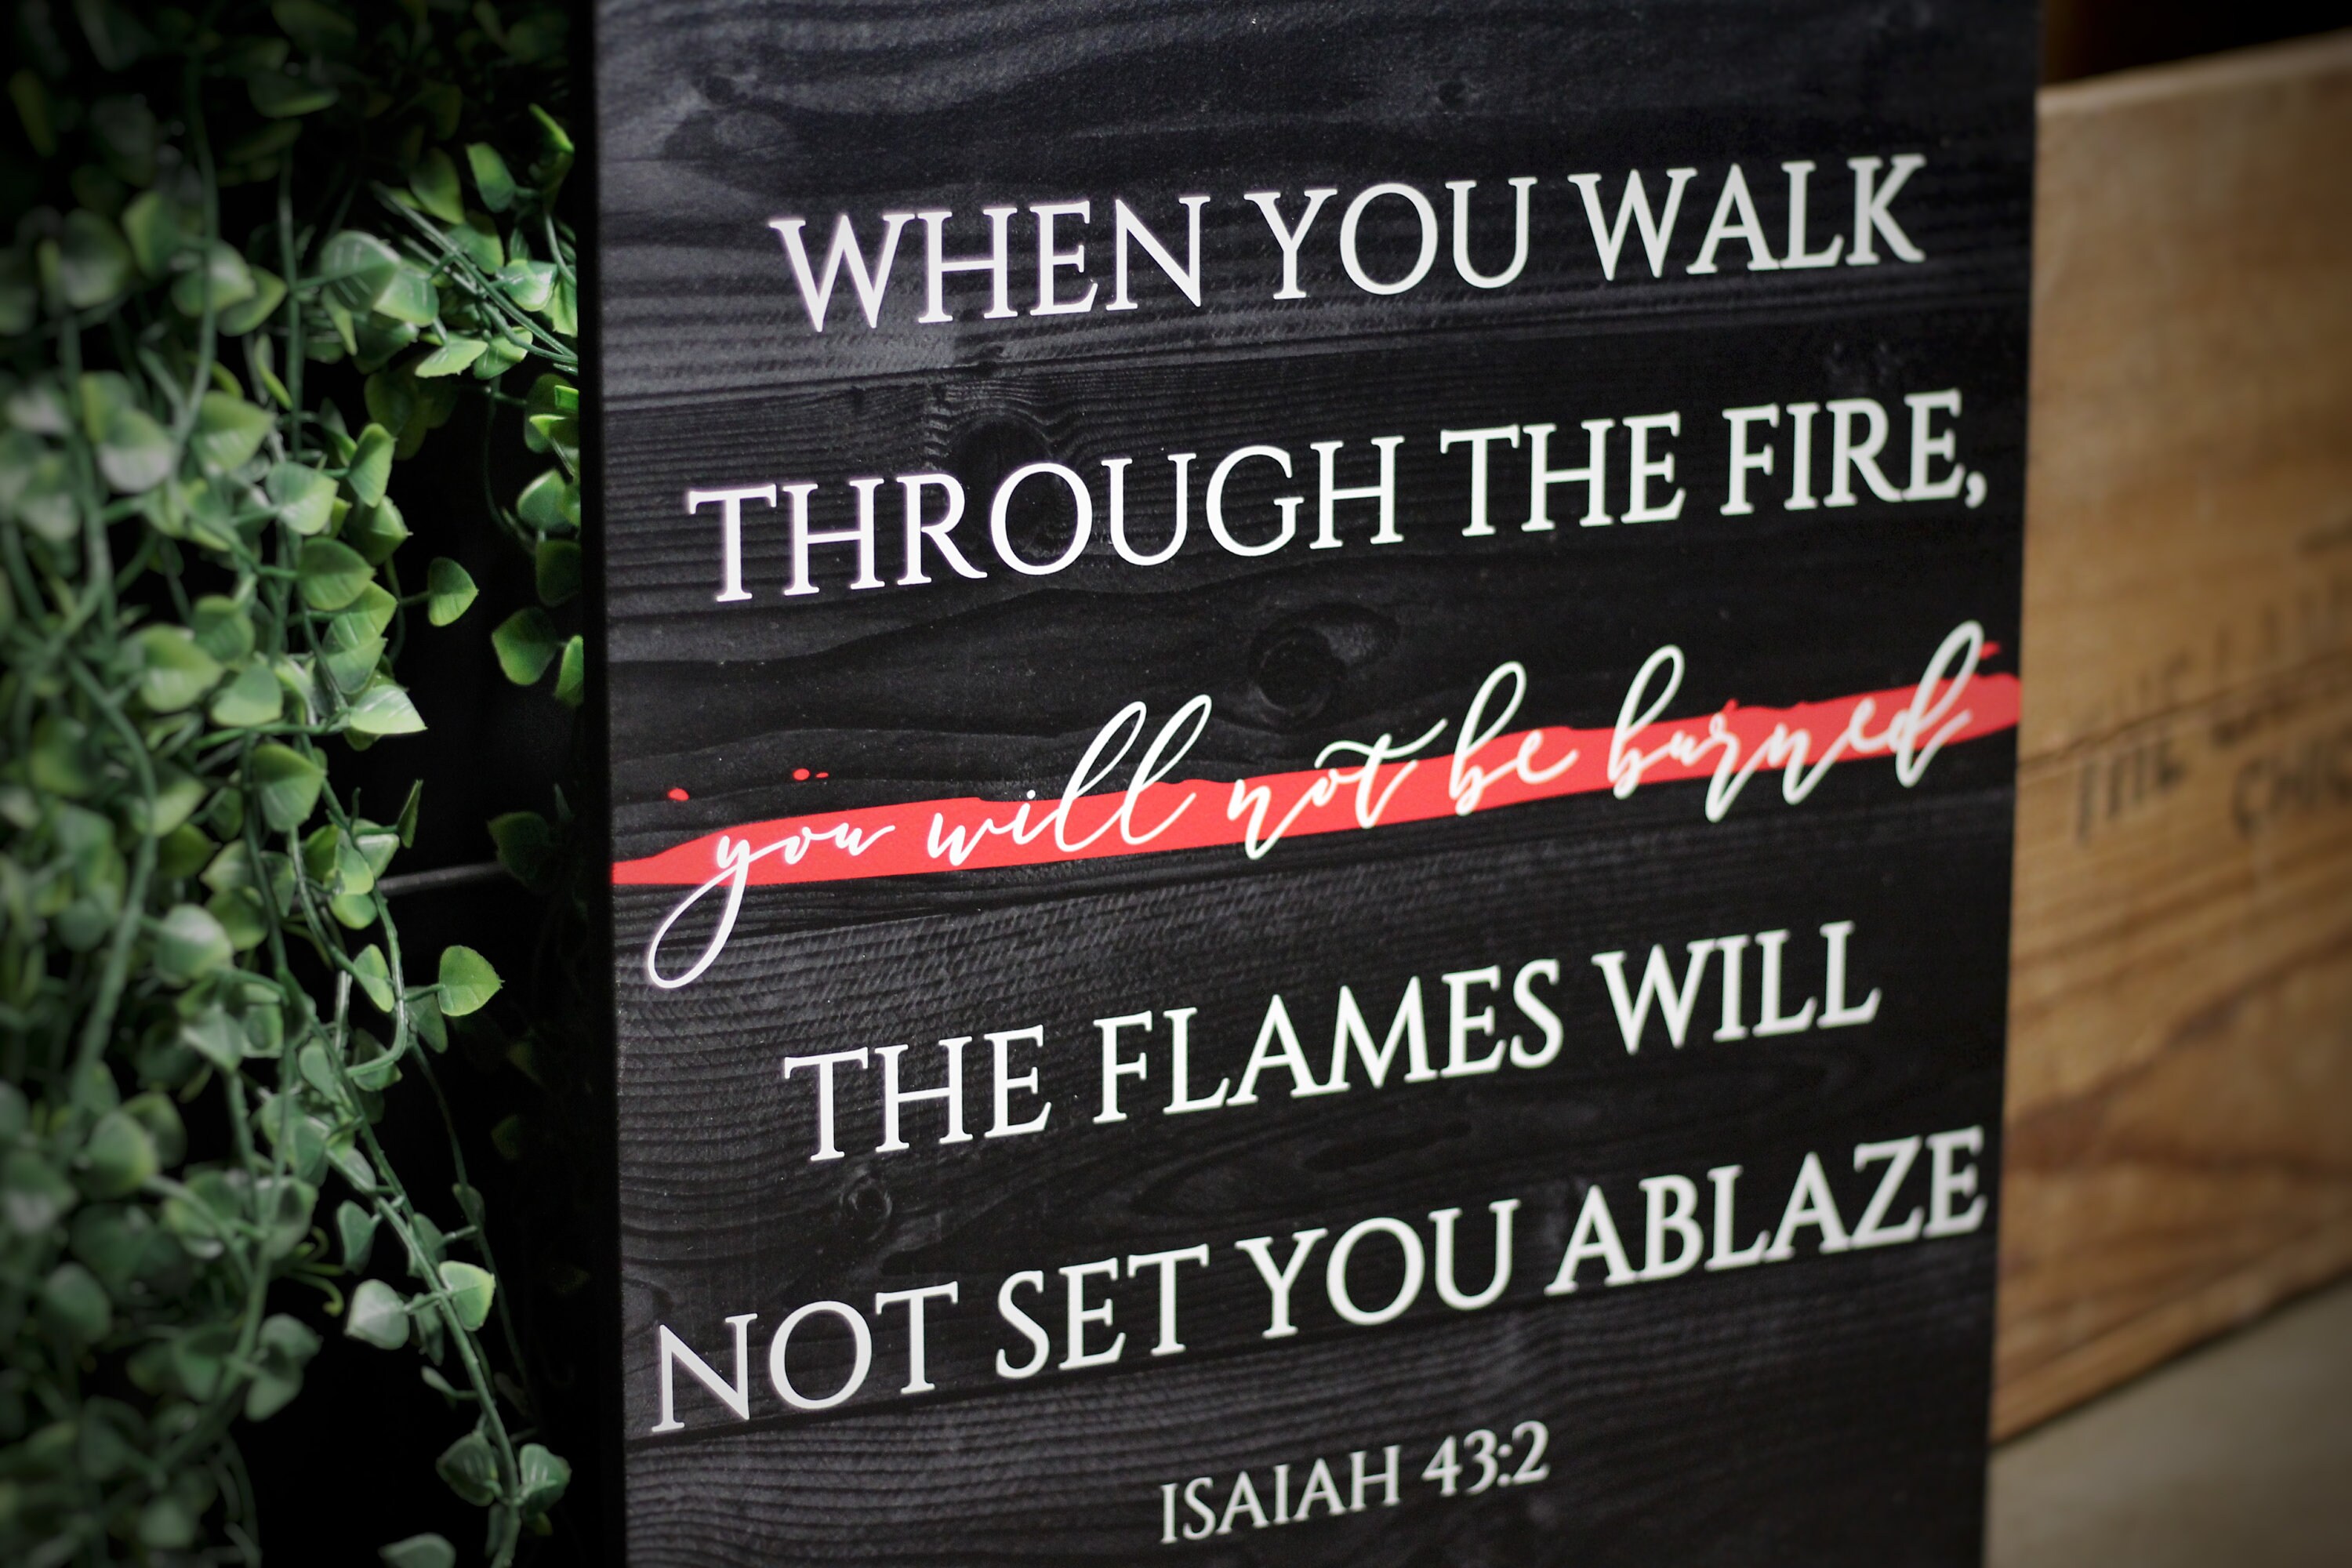 WHEN YOU WALK
THROUGH THE FIRE,
you will not be burned
THE FLAMES WILL
NOT SET YOU ABLAZE
ISAIAH 43:2
THE